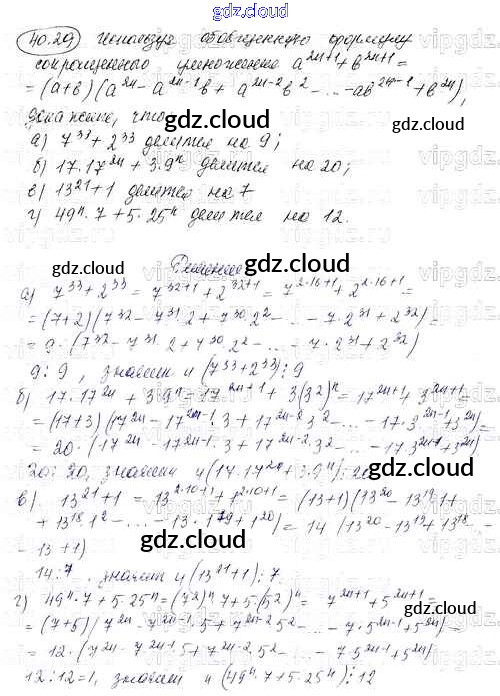 gdz.cloud
40.29 Используя обобщенную формулу
сокращенного умножения a²ⁿ⁺¹+b²ⁿ⁺¹=
=(a+b)(a²ⁿ-a²ⁿ⁻¹b+a²ⁿ⁻²b²-...-ab²ⁿ⁻¹+b²ⁿ),
докажите, что:
а) 7³³+2³³ делится на 9;
б) 17·17²ⁿ+3·9ⁿ делится на 20;
в) 13²¹+1 делится на 7
г) 49ⁿ·7+5·25ⁿ делится на 12.
Решение
а) 7³³+2³³=7³²⁺¹+2³²⁺¹=7²·¹⁶⁺¹+2²·¹⁶⁺¹=
=(7+2)(7³²-7³¹·2+7³⁰·2²-...-7·2³¹+2³²)=
=9·(7³²-7³¹·2+7³⁰·2²-...-7·2³¹+2³²)
9⋮9, значит и (7³³+2³³)⋮9
б) 17·17²ⁿ+3·9ⁿ=17²ⁿ⁺¹+3(3²)ⁿ=17²ⁿ⁺¹+3²ⁿ⁺¹=
=(17+3)(17²ⁿ-17²ⁿ⁻¹·3+17²ⁿ⁻²·3²-...-17·3²ⁿ⁻¹+3²ⁿ)=
=20·(17²ⁿ-17²ⁿ⁻¹·3+17²ⁿ⁻²·3²-...-17·3²ⁿ⁻¹+3²ⁿ)
20⋮20, значит и (17·17²ⁿ+3·9ⁿ)⋮20
в) 13²¹+1=13²·¹⁰⁺¹+1²·¹⁰⁺¹=(13+1)(13²⁰-13¹⁹·1+
+13¹⁸·1²-...-13·1¹⁹+1²⁰)=14(13²⁰-13¹⁹+13¹⁸-...-
-13+1)
14⋮7, значит и (13²¹+1)⋮7
г) 49ⁿ·7+5·25ⁿ=(7²)ⁿ·7+5·(5²)ⁿ=7²ⁿ⁺¹+5²ⁿ⁺¹=
=(7+5)(7²ⁿ-7²ⁿ⁻¹·5+7²ⁿ⁻²·5²-...-7·5²ⁿ⁻¹+5²ⁿ)=
=12·(7²ⁿ-7²ⁿ⁻¹·5+7²ⁿ⁻²·5²-...-7·5²ⁿ⁻¹+5²ⁿ)
12:12=1, значит и (49ⁿ·7+5·25ⁿ)⋮12